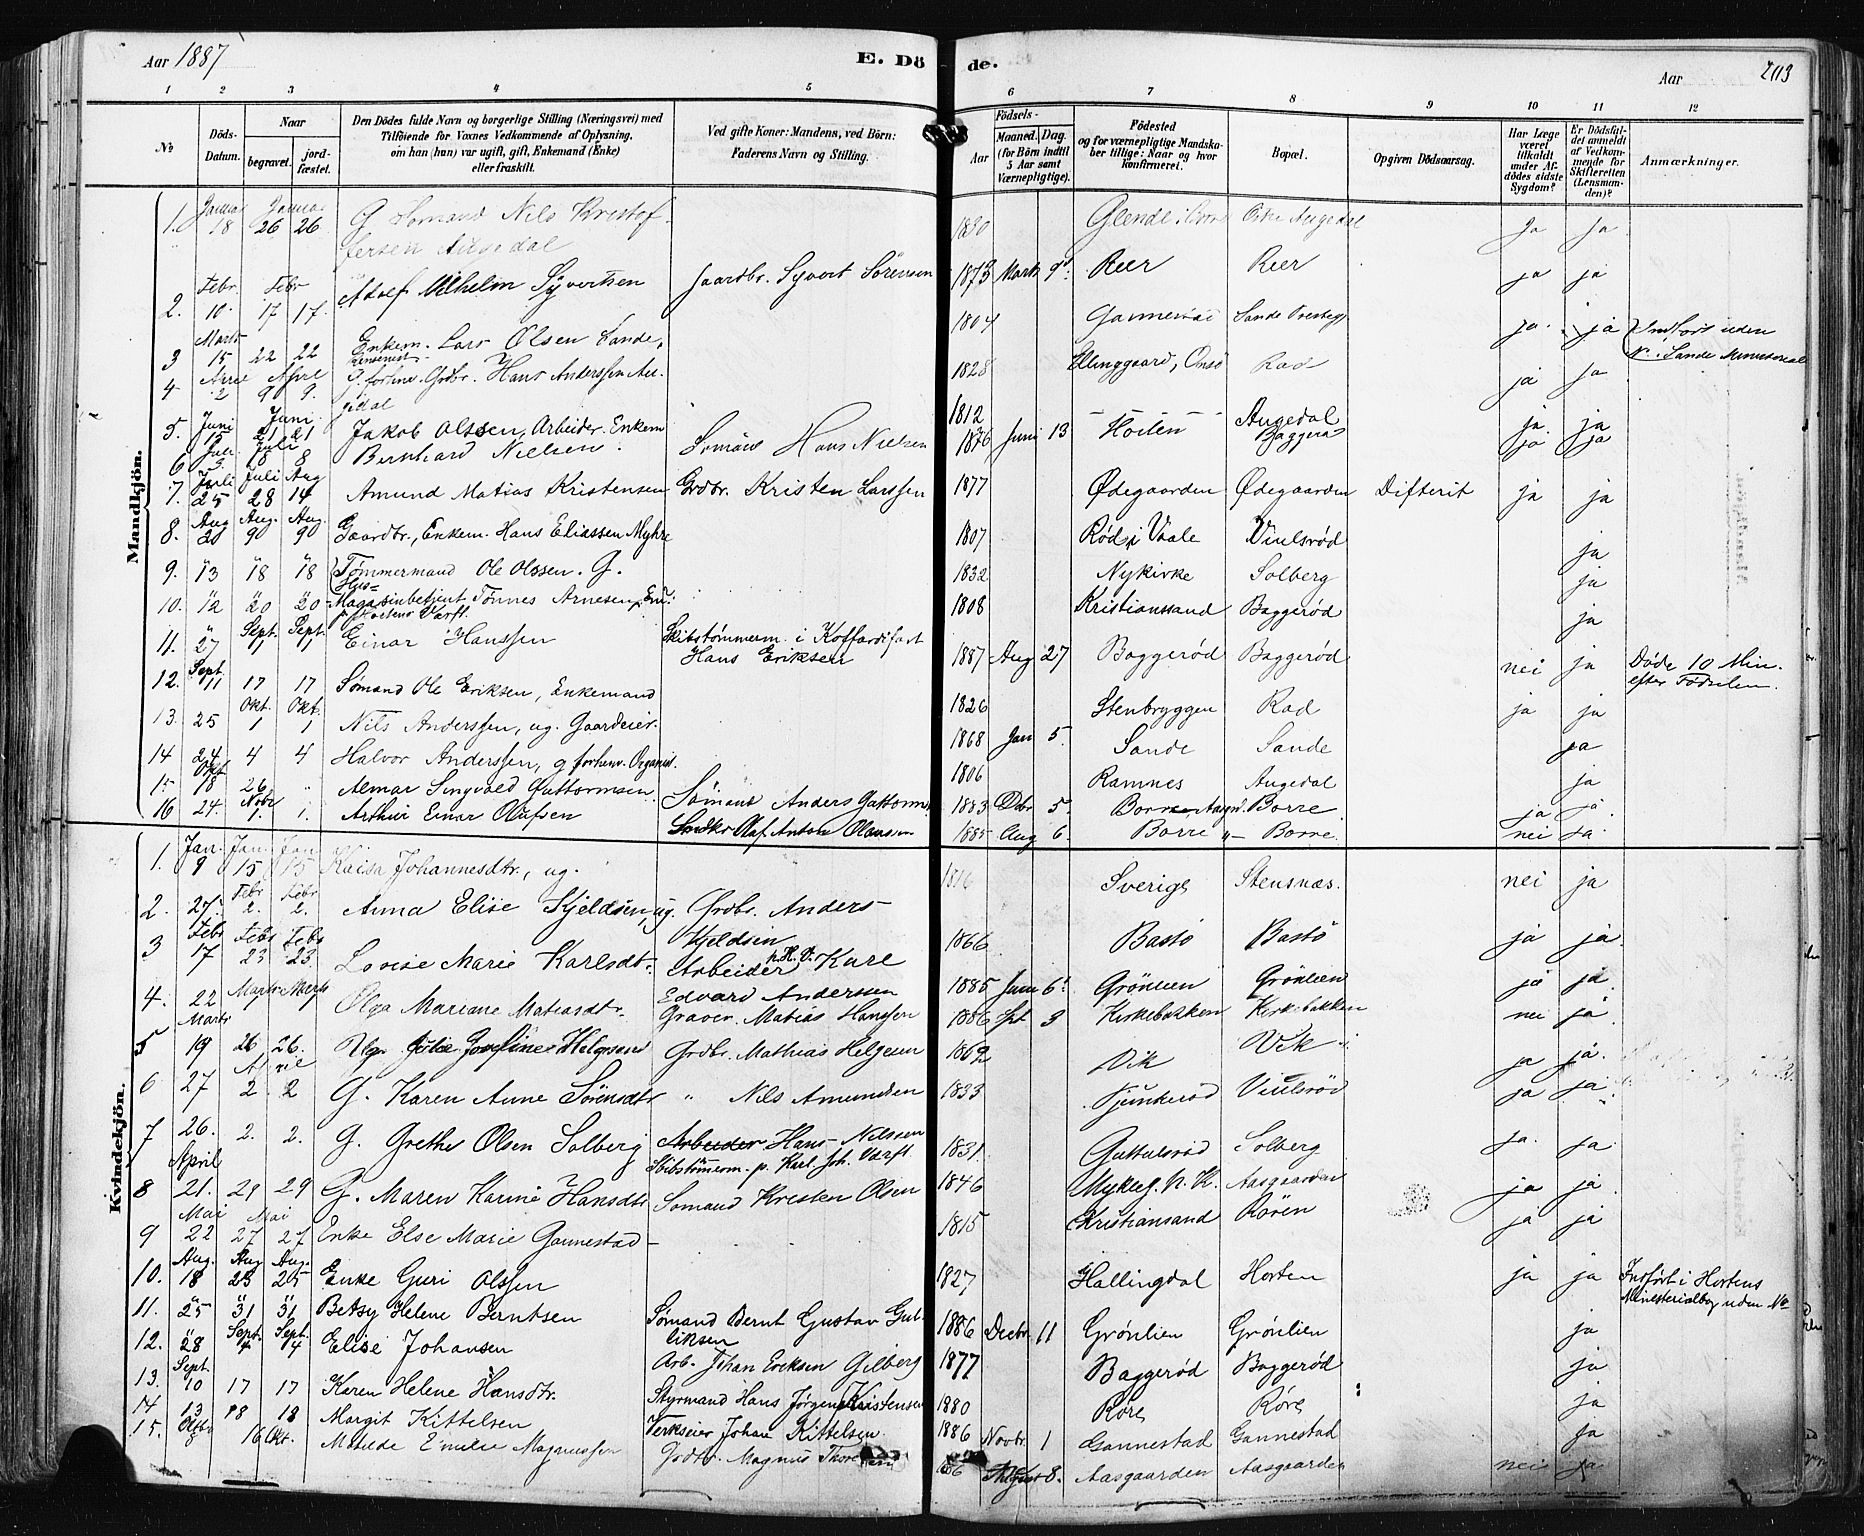 Aar 1887
E. Dö de.
Aar
203
1 2 3 4 5 6 7 8 9 10 11 12
No
Döds-Datum.
Naar
begravet.
jordfæstet.
Den Dödes fulde Navn og borgerlige Stilling (Næringsvei) med
Tilföiende for Voxnes Vedkommende af Oplysning,
om han (hun) var ugift, gift, Enkemand (Enke)
eller fraskilt.
Ved gifte Koner: Mandens, ved Börn:
Faderens Navn og Stilling.
Födsels-
Aar
Maaned. Dag.
(for Börn indtil 5 Aar samt Værnepligtige).
Födested
og for værnepligtige Mandskaber tillige: Naar og hvor konfirmeret.
Bopæl.
Opgiven Dödsaarsag.
Har Læge været tilkaldt under Afdödes sidste Sygdom?
Er Dödsfaldet anmeldt af Vedkommende for Skifteretten (Lensmanden)?
Anmærkninger.
Mandkjön.
1. Januar 18 Januar 26 26 G Sømand Nils Kristoffersen Augedal 1830 Augedal Ja Ja
2. Febr. 10. Febr 17 17. Adolf Vilhelm Syvertsen Gaardbr. Syvert Sörensen 1873 Marts 9. Reer Reer ja ja
3 Marts 15 22 22 Enkem. Lars Olsen Sande, 1804 Gannestad Sande ja. ja Indført uden No i Sande Ministerial
4. April 2 April 9 9. forhen. Grdbr. Hans Anderssen Augedal 1828 Ellinggaard, Onsö Rad ja ja
5. Juni 15 Juni 21 21 Jakob Olssen, Arbeider. Enkem 1812 Augedal ja. ja
6 Juli 3. Juli 8 8 Bernhard Nielsen. Sömand Hans Nielsen 1876 Juni 13 Horten Baggerød ja ja
7. Juli 25 Juli 28 Aug 14 Amund Matias Kristensen Grdbr. Kristen Larssen 1877 Ødegaarden Ødegaarden Difterit ja ja
8. Aug Aug. Aug. Gaardbr., Enkem. Hans Eliassen Myhre 1807 Rød i Vaale Viulsrød ja
9. " 13 " 18 " 18 Tømmermand Ole Olssen. G. 1832 Nykirke Solberg ja
10. " 12 " 20 " 20 Magasinbetjent Tönnes Arnesen, Enk: p. Hortens Værft. 1808 Kristianssand Baggerød ja
11. " 27 Sept. 1 Sept. 1 Einar Hanssen Skibstømmerm. i Koffardifart Hans Eriksen 1887 Aug 27 Baggerød Baggerød nei ja Døde 10 Min. efter Fødselen.
12. Sept. 11 17 17 Sømand Ole Eriksen, Enkemand 1826 Stenbryggen Rad ja ja
13. 25 Okt. 1 Okt. 1 Nils Anderssen, ug. Gaardeier. 1868 Jan 5. Sande Sande ja
14 24 4 4 Halvor Anderssen, g forhenv. Organist. 1806 Ramnes Augedal ja
15 Okt 18 26 " Almar Singvald Guttormsen Sømand Anders Guttorms 1883 Dcbr 5. Borre Borre ja ja
16 24. Novbr 1. 1. Arthur Einar Olufsen Olaf Anton Olaussen 1885 Aug 6. Borre " Borre. nei ja.
Kvindekjön.
1. Jan. 9 Jan. 15 Jan 15 Kaisa Johannesdtr., ug. 1816 Sverige Stensnæs. nei ja
2. 27. Febr 2. Febr. 2. Anna Elise Kjeldsen, ug. Grdbr. Anders Kjeldsen 1866 Bastö Bastö ja ja
3 Febr 17 Febr 23 Febr 23. Lovise Marie Karlsdtr. Arbeider p. H. V. Karl Edvard Anderssen 1885 Juni 6. Grönlien Grönlien ja ja
4. 22 Marts Marts Olga Mariane Matiasdtr. Graver. Matias Hanssen 1886 Spt 3 Kirkebakken Kirkebakken nei ja
5 Marts 19 26 26. Ug. Julie Josefine Helgesen Grdbr. Mathias Helgesen 1862 Vik Vik ja ja.
6 27 April 2 2 G. Karen Anne Sörensdtr " Nils Amundsen 1833 Viulsröd ja ja
7 26. 2. 2. G. Grethe Olsen Solberg Arbeider Hans Nilssen Skibstömerm. p. Karl Joh. Værft 1831. Guttulsröd Solberg ja. ja
8 April 21. 29 29 G. Maren Karine Hansdtr Sømand Kresten Olsen 1846 Mykleg. N. K. Aasgaarden ja ja
9 Mai 22 Mai 27 27 Enke Else Marie Gannestad 1815 Kristiansand Rören ja ja
10. Aug. 18 Aug 23 Aug. 25 Enke Guri Olssen 1827 Hallingdal Horten ja ja Indført i Hortens Ministerialbog uden No
11. " 25 " 31 " 31 Betsy Helene Berntsen Sømand Bernt Gustav Gulliksen 1886 Decbr 11 Grönlien Grönlien ja
12. " 28 Sept. 4 Sept. 4 Elise Johansen Arb. Johan Eriksen Gilberg 1877 Baggerød Baggerød ja
13. Sept. 10 17 17 Karen Helene Hansdtr. Styrmand Hans Jørgen Kristensen 1880 Røre Røre ja
14 13 18 18 Margit Kittelsen Verkseier Johan Kittelsen. 1886 Novbr. 1 Gannestad Gannestad ja
15. Oktbr 8 16 Okt. Matilde Emilie Magnussen Grdbr. Magnus August 8. Aasgaarden Aasgaarden nei ja